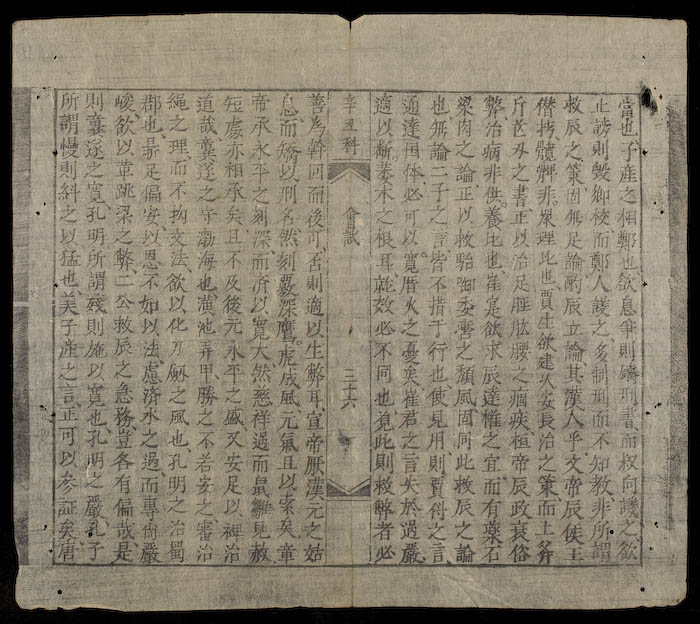 當也子産之相鄭也欲息爭則鑄刑書而叔向議之欲
止謗則毀鄉校而鄭人議之多制刑而不知教非所謂
救辰之策固無足論酌辰立論其漢人乎文帝辰侯王
僭髖髀非理比也賈生欲建久安長治之策而上斧
斤芒刃之書正以治足腄肱腰之痼疾桓帝辰政衰俗
弊治病非供養比也崔寔欲求辰達權之宜而有藥石
梁肉之論正以救駘啣委轡之頹風固同此救辰之論
也無論二子之言皆不措于行也使見用則賈傅之言
通達国体必可以寬厝火之憂矣崔君之言失於過嚴
適以斷木之根耳效必不同也見此則救弊者必
辛丑科
會試
三十六
善為幹囬而後可否則適以生弊耳宣帝厭漢元之姑
息而矯以刑名然刻覈深鷹虎成風元氣且以索矣章
帝承永平之刻深而済以寬大然慈祥過而鼠雛見赦
短處亦相承矣且不及後元永平之盛又安足以裨治
道哉龔遂之守渤海也潢池弄甲勝之不若安之審治
繩之理而不拘文法欲以化刀劍之風也孔明之治蜀
郡也足偏安以恩不如以法慮済水之過而專尚嚴
峻欲以革跳梁之弊二公救辰之急務豈各有偏哉是
則龔遂之寬孔明所謂殘則施以寬也孔明之嚴孔子
所謂慢則糾之以猛也美子産之言正可以参証矣唐